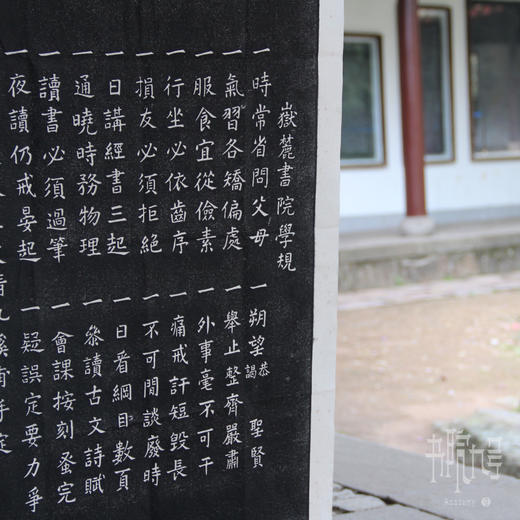 嶽麓書院學規
一時常省問父母
一朔望恭謁聖賢
一氣習各矯偏處
一舉止整齊嚴肅
一服食宜從儉素
一外事毫不可干
一行坐必依齒序
一痛戒訐短毀長
一損友必須拒絕
一不可閒談廢時
一日講經書三起
一日看綱目數頁
一通曉時務物理
一參讀古文詩賦
一讀書必須過筆
一會課按刻蚤完
一夜讀仍戒晏起
一疑誤定要力爭